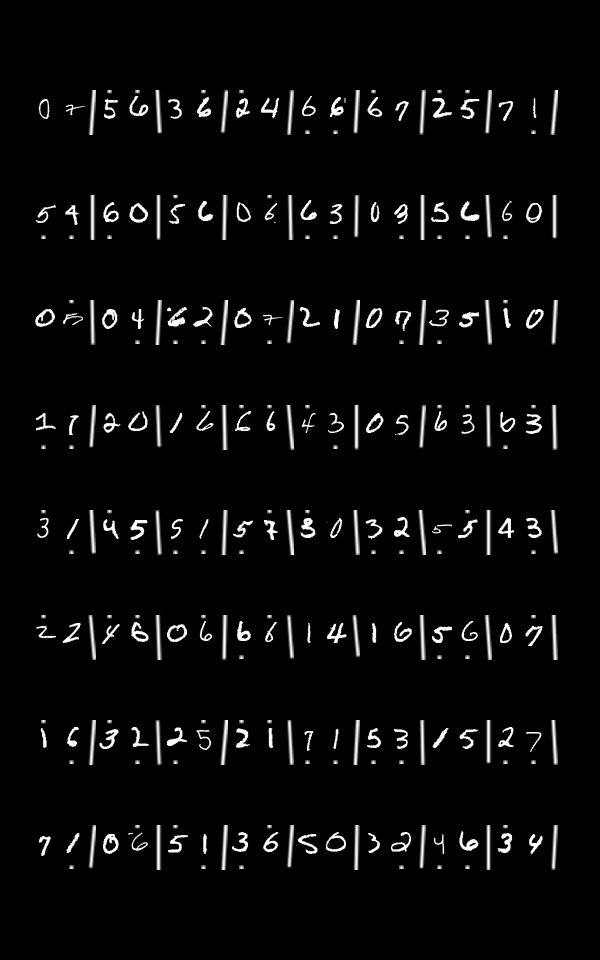 0 7 | 5 6 | 3 6 | 2 4 | 6 6 | 6 7 | 2 5 | 7 1 |
5 4 | 6 0 | 5 6 | 0 6 | 6 3 | 0 3 | 5 6 | 6 0 |
0 5 | 0 4 | 6 2 | 0 7 | 2 1 | 0 7 | 3 5 | 1 0 |
1 7 | 2 0 | 1 6 | 6 6 | 4 3 | 0 5 | 6 3 | 6 3 |
3 1 | 4 5 | 5 1 | 5 7 | 3 0 | 3 2 | 5 5 | 4 3 |
2 2 | 4 6 | 0 6 | 6 6 | 1 4 | 1 6 | 5 6 | 0 7 |
1 6 | 3 2 | 2 5 | 2 1 | 7 1 | 5 3 | 1 5 | 2 7 |
7 1 | 0 6 | 5 1 | 3 6 | 5 0 | 3 2 | 4 6 | 3 4 |